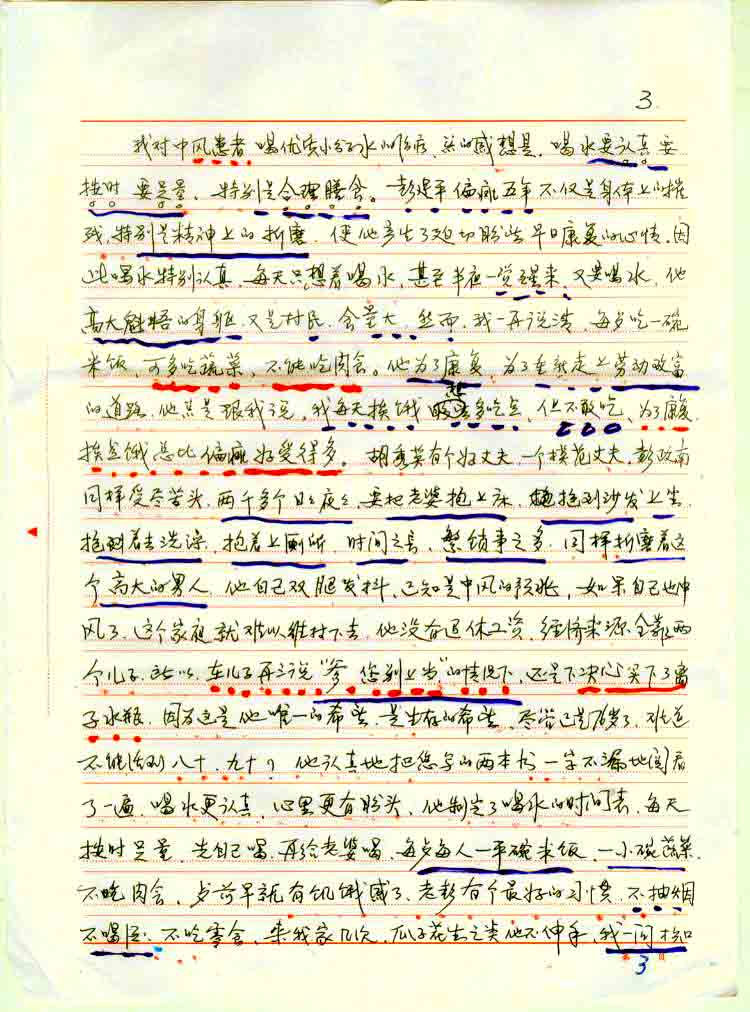 3
我对中风患者喝优质小分子水的治疗,总的感想是,喝水要认真要
按时要足量,特别是合理膳食。彭建平偏瘫五年不仅是身体上的摧
残,特别是精神上的折磨,使他产生了迫切盼些早日康复的心情,因
此喝水特别认真,每天只想着喝水,甚至半夜一觉醒来,又要喝水,他
高大魁梧的身躯,又是村民,食量大,然而,我一再说浩,每歺吃一碗
米饭,可多吃蔬菜,不能吃肉食。他为了康复,为了重新走上劳动致富
的道路,他总是跟我说,我每天挨饿想多吃点,但不敢吃,为了康复
挨点饿总比偏瘫好受得多。胡秀英有个好丈夫,一个模范丈夫,彭政南
同样受尽苦头,两千多个日日夜夜,要把老婆抱上床,抱到沙发上坐,
抱到着去洗澡,抱着上厕所,时间之长,繁锁事之多,同样折磨着这
个高大的男人,他自己双腿发抖,已知是中风的预兆,如果自己也中
风了,这个家庭就难以维持下去,他没有退休工资,经济来源全靠两
个儿子,所以,在儿子再三说"爹,您别上当"的情况下,还是下决心买下了离
子水瓶,因为这是他唯一的希望,是生存的希望,尽管已是岁了,难道
不能活到八十、九十?他认真地把您写的两本书一字不漏地阅看
了一遍,喝水更认真,心里更有盼头,他制定了喝水的时间表,每天
按时足量,先自己喝,再给老婆喝,每歺每人一平碗米饭,一小碗蔬菜,
不吃肉食,歺前早就有饥饿感了,老彭有个最好的习惯,不抽烟
不喝酒,不吃零食,来我家几次,瓜子花生之类他不伸手,我一问才知
3